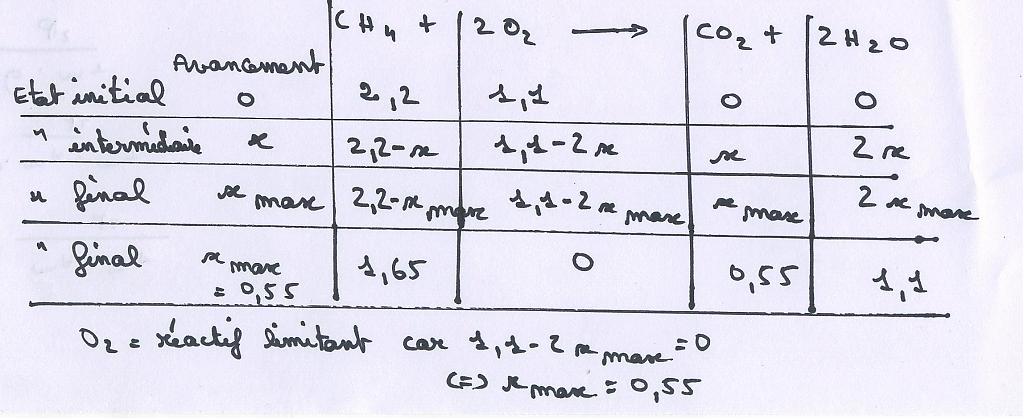 CH4 + 2 O2 → CO2 + 2 H2O
Avancement
Etat initial 0 2,2 1,1 0 0
" intermédiaire x 2,2-x 1,1-2x x 2x
" final x max 2,2-x max 1,1-2x max x max 2x max
" final x max = 0,55 1,65 0 0,55 1,1
O2 = réactif limitant car 1,1-2x max = 0
(=) x max = 0,55